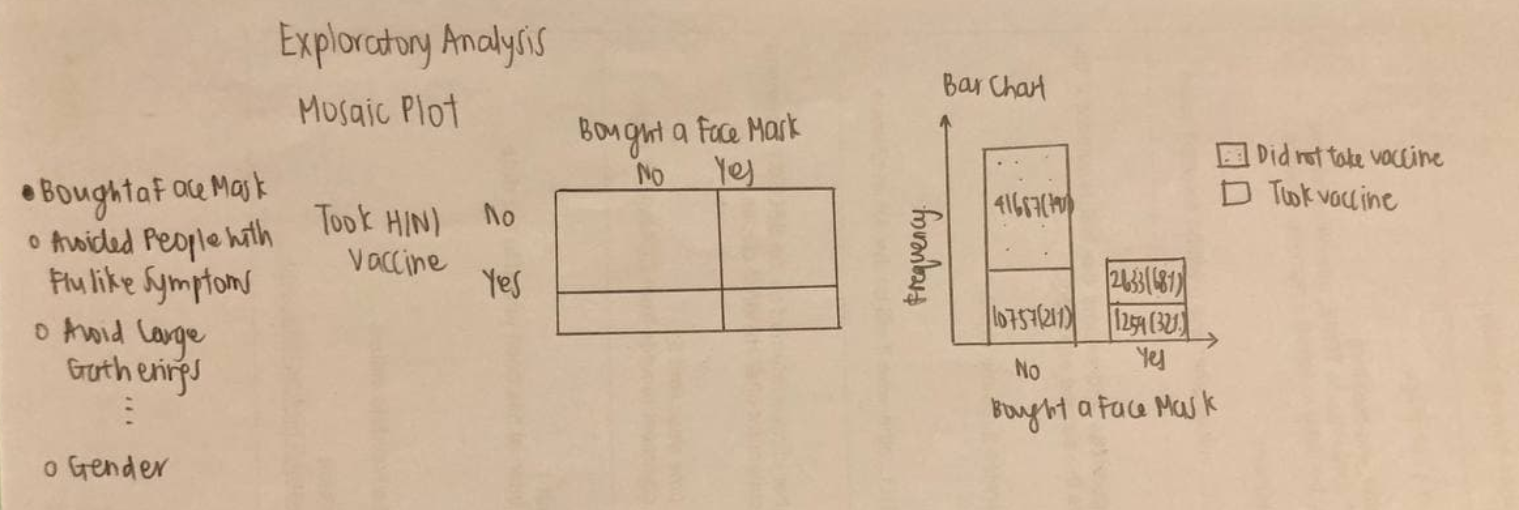 Exploratory Analysis
Mosaic Plot
• Bought a Face Mask
o Avoided People with
Flu like Symptoms
o Avoid Large
Gatherings
⋮
o Gender
Bought a Face Mark
No Yes
Took H1N1
vaccine
No
Yes
Bar Chart
Frequency
10757(21%)
2633(68%)
1254(32%)
No
Yes
Bought a Face Mask
Did not take vaccine
Took vaccine